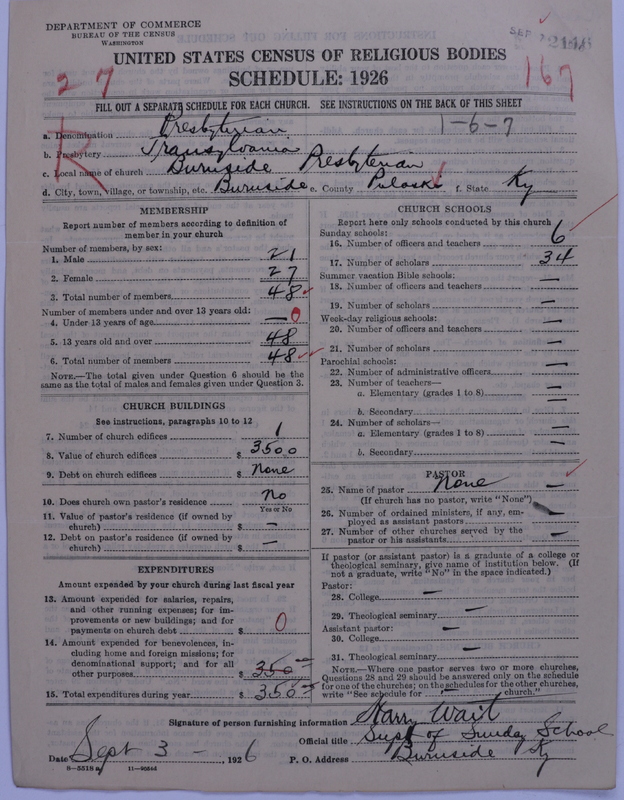 DEPARTMENT OF COMMERCE
BUREAU OF THE CENSUS
WASHINGTON
UNITED STATES CENSUS OF RELIGIOUS BODIES
SCHEDULE: 1926
27
167
FILL OUT A SEPARATE SCHEDULE FOR EACH CHURCH. SEE INSTRUCTIONS ON THE BACK OF THIS SHEET
R
a. Denomination Presbyterian 1-6-7
b. Presbytery Transylvania
c. Local name of church Burnside Presbyterian
d. City, town, village, or township, etc. Burnside e. County Pulaski f. State Ky
MEMBERSHIP
Report number of members according to definition of
member in your church
Number of members, by sex:
1. Male 21
2. Female 27
3. Total number of members 48
Number of members under and over 13 years old:
4. Under 13 years of age — 0
5. 13 years old and over 48
6. Total number of members 48
NOTE.—The total given under Question 6 should be the
same as the total of males and females given under Question 3.
CHURCH BUILDINGS
See instructions, paragraphs 10 to 12
7. Number of church edifices 1
8. Value of church edifices $ 3500
9. Debt on church edifices $ None
10. Does church own pastor's residence No
Yes or No
11. Value of pastor's residence (if owned by
church) $ —
12. Debt on pastor's residence (if owned by
church) $ —
EXPENDITURES
Amount expended by your church during last fiscal year
13. Amount expended for salaries, repairs,
and other running expenses; for im-
provements or new buildings; and for
payments on church debt $ 0
14. Amount expended for benevolences, in-
cluding home and foreign missions; for
denominational support; and for all
other purposes $ 350
15. Total expenditures during year $ 350
CHURCH SCHOOLS
Report here only schools conducted by this church
Sunday schools:
16. Number of officers and teachers 6
17. Number of scholars 34
Summer vacation Bible schools:
18. Number of officers and teachers —
19. Number of scholars —
Week-day religious schools:
20. Number of officers and teachers —
21. Number of scholars —
Parochial schools:
22. Number of administrative officers —
23. Number of teachers—
a. Elementary (grades 1 to 8) —
b. Secondary —
24. Number of scholars—
a. Elementary (grades 1 to 8) —
b. Secondary —
PASTOR
25. Name of pastor None —
(If church has no pastor, write "None")
26. Number of ordained ministers, if any, em-
ployed as assistant pastors —
27. Number of other churches served by the
pastor or his assistants —
If pastor (or assistant pastor) is a graduate of a college or
theological seminary, give name of institution below. (If
not a graduate, write "No" in the space indicated.)
Pastor:
28. College —
29. Theological seminary —
Assistant pastor:
30. College —
31. Theological seminary —
NOTE.—Where one pastor serves two or more churches,
Questions 28 and 29 should be answered only on the schedule
for one of the churches; on the schedules for the other churches,
write "See schedule for church."
Signature of person furnishing information Harry Wait
Official title Supt of Sunday School
Date Sept 3 — 1926 P. O. Address Burnside Ky
8-5518 a 11-9054d